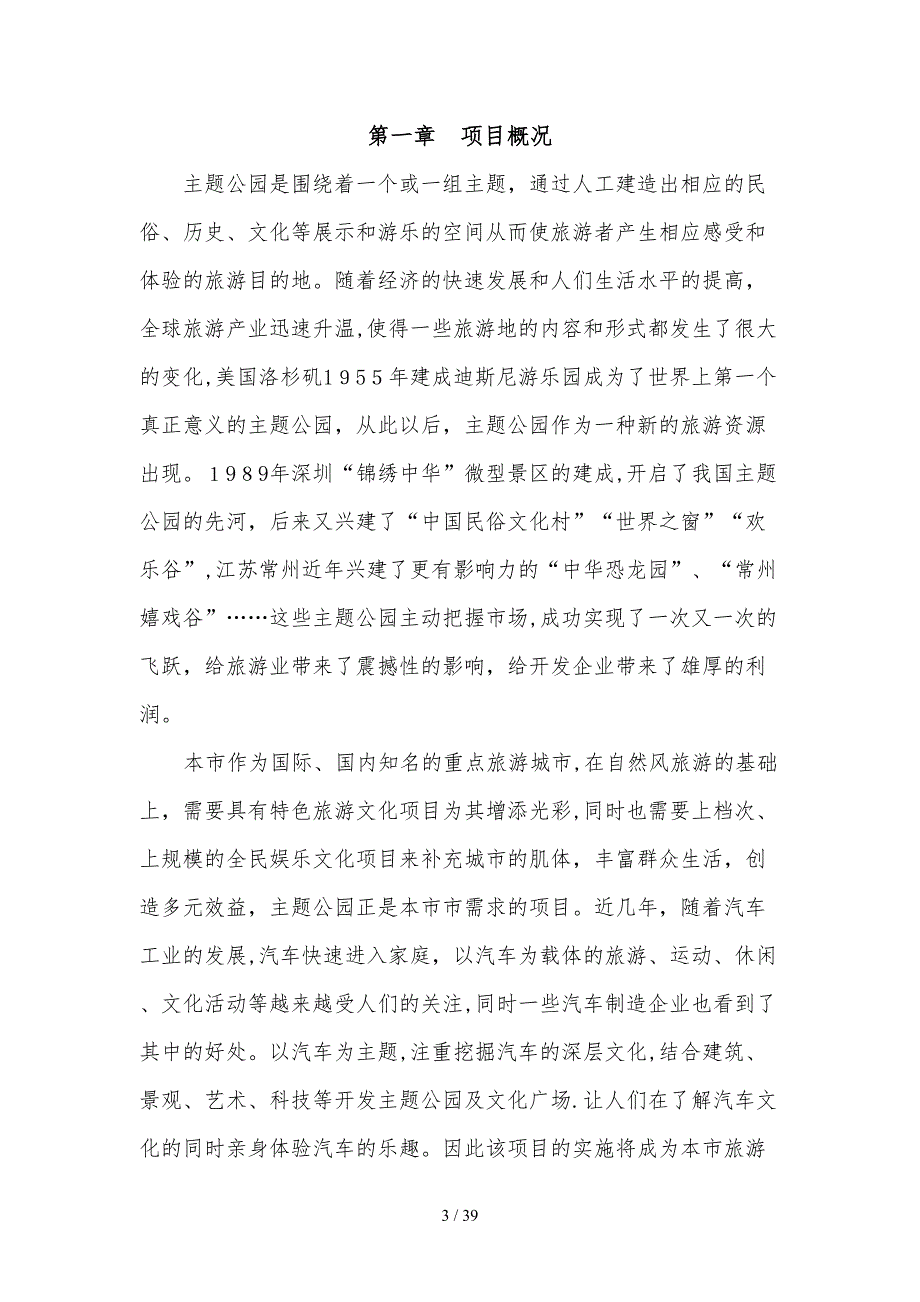 第一章　项目概况
主题公园是围绕着一个或一组主题，通过人工建造出相应的民
俗、历史、文化等展示和游乐的空间从而使旅游者产生相应感受和
体验的旅游目的地。随着经济的快速发展和人们生活水平的提高，
全球旅游产业迅速升温,使得一些旅游地的内容和形式都发生了很大
的变化,美国洛杉矶1955年建成迪斯尼游乐园成为了世界上第一个
真正意义的主题公园，从此以后，主题公园作为一种新的旅游资源
出现。1989年深圳“锦绣中华”微型景区的建成,开启了我国主题
公园的先河，后来又兴建了“中国民俗文化村”“世界之窗”“欢
乐谷”,江苏常州近年兴建了更有影响力的“中华恐龙园”、“常州
嬉戏谷”……这些主题公园主动把握市场,成功实现了一次又一次的
飞跃，给旅游业带来了震撼性的影响，给开发企业带来了雄厚的利
润。
本市作为国际、国内知名的重点旅游城市,在自然风旅游的基础
上，需要具有特色旅游文化项目为其增添光彩,同时也需要上档次、
上规模的全民娱乐文化项目来补充城市的肌体，丰富群众生活，创
造多元效益，主题公园正是本市市需求的项目。近几年，随着汽车
工业的发展,汽车快速进入家庭，以汽车为载体的旅游、运动、休闲
、文化活动等越来越受人们的关注,同时一些汽车制造企业也看到了
其中的好处。以汽车为主题,注重挖掘汽车的深层文化,结合建筑、
景观、艺术、科技等开发主题公园及文化广场.让人们在了解汽车文
化的同时亲身体验汽车的乐趣。因此该项目的实施将成为本市旅游
3 / 39